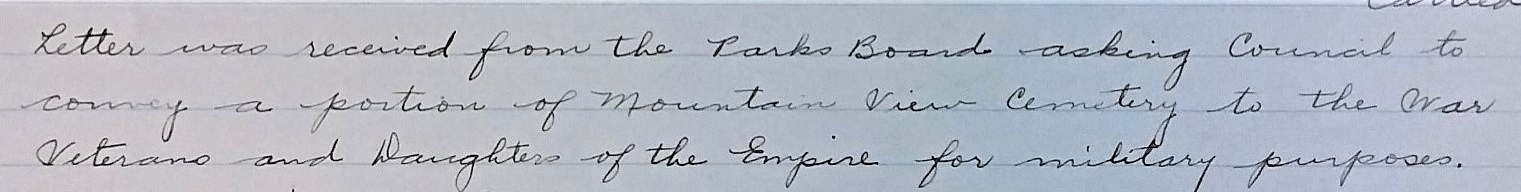 Carried
Letter was received from the Parks Board asking Council to
convey a portion of Mountain View Cemetery to the War
Veterans and Daughters of the Empire for military purposes.